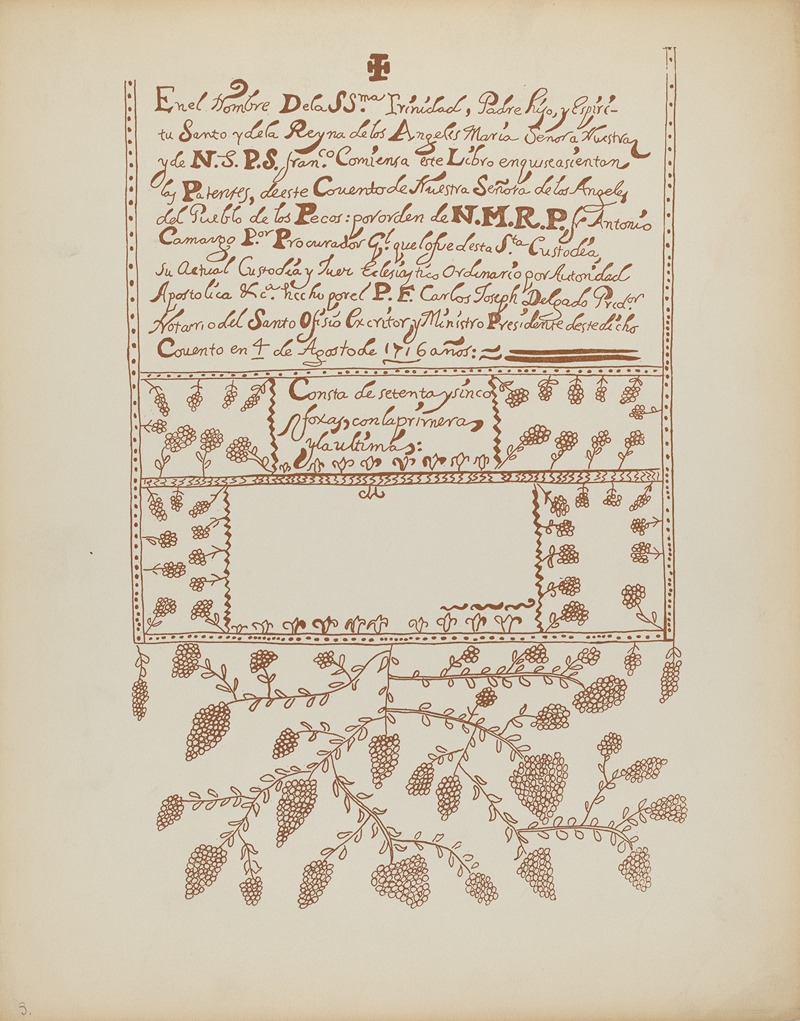 En el Nombre De la SS.ma Trinidad, Padre hijo, y Espiri-
tu Santo y de la Reyna de los Angeles Maria Señora Nuestra
y de N.S. P.S. fran.co Comiensa este Libro en quiseasientan
las Patentes, de este Couento de Nuestra Señora de los Angeles
del Pueblo de los Pecos: por orden de N.M.R.P. fr Antonio
Camargo P.or Procurador G.l que lo fue desta S.ta Custodia
su Actual Custodia y Juez Eclesiastico Ordinario por Autoridad
Apostolica &c.a hecho por el P. F. Carlos Joseph Delgado Predor
Notario del Santo Ofisio Excritor, y Ministro Presidente deste dicho
Couento en 4 de Agosto de 1716 años:
Consta de setenta y sinco
foxas, con la primera
y la ultima:
3.